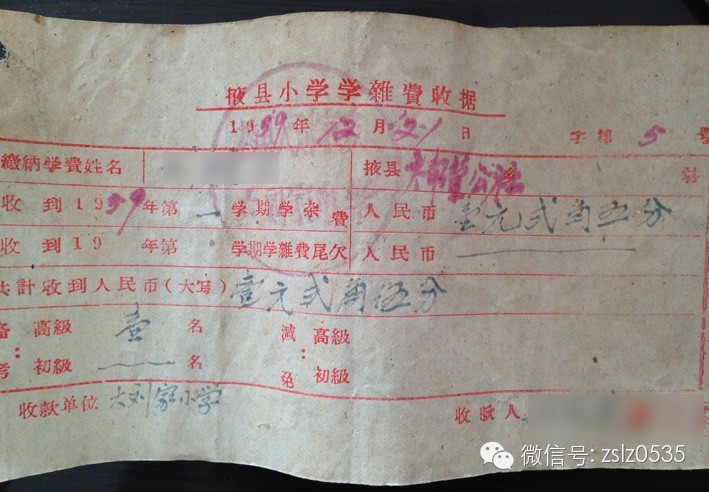 掖县小学学雜費收据
1959年12月21日 字第5号
繳納学費姓名 掖县 公社
收到1959年第一学期学杂費 人民币 壹元弍角五分
收到19 年第 学期学雜費尾欠 人民币
共計收到人民币(大写) 壹元弍角伍分
备 高級 壹 名 減 高級
考 : 初級 名 免 : 初級
收款单位 大刘家小学 收款人
微信号: zslz0535